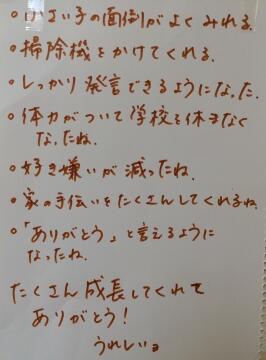 ○小さい子の面倒がよくみれる.
○掃除機をかけてくれる.
○しっかり発言できるようになった.
○体力がついて学校を休まなく
なったね.
○好き嫌いが減ったね.
○家の手伝いをたくさんしてくれるね.
○「ありがとう」と言えるように
なったね.
たくさん成長してくれて
ありがとう!
うれしいョ